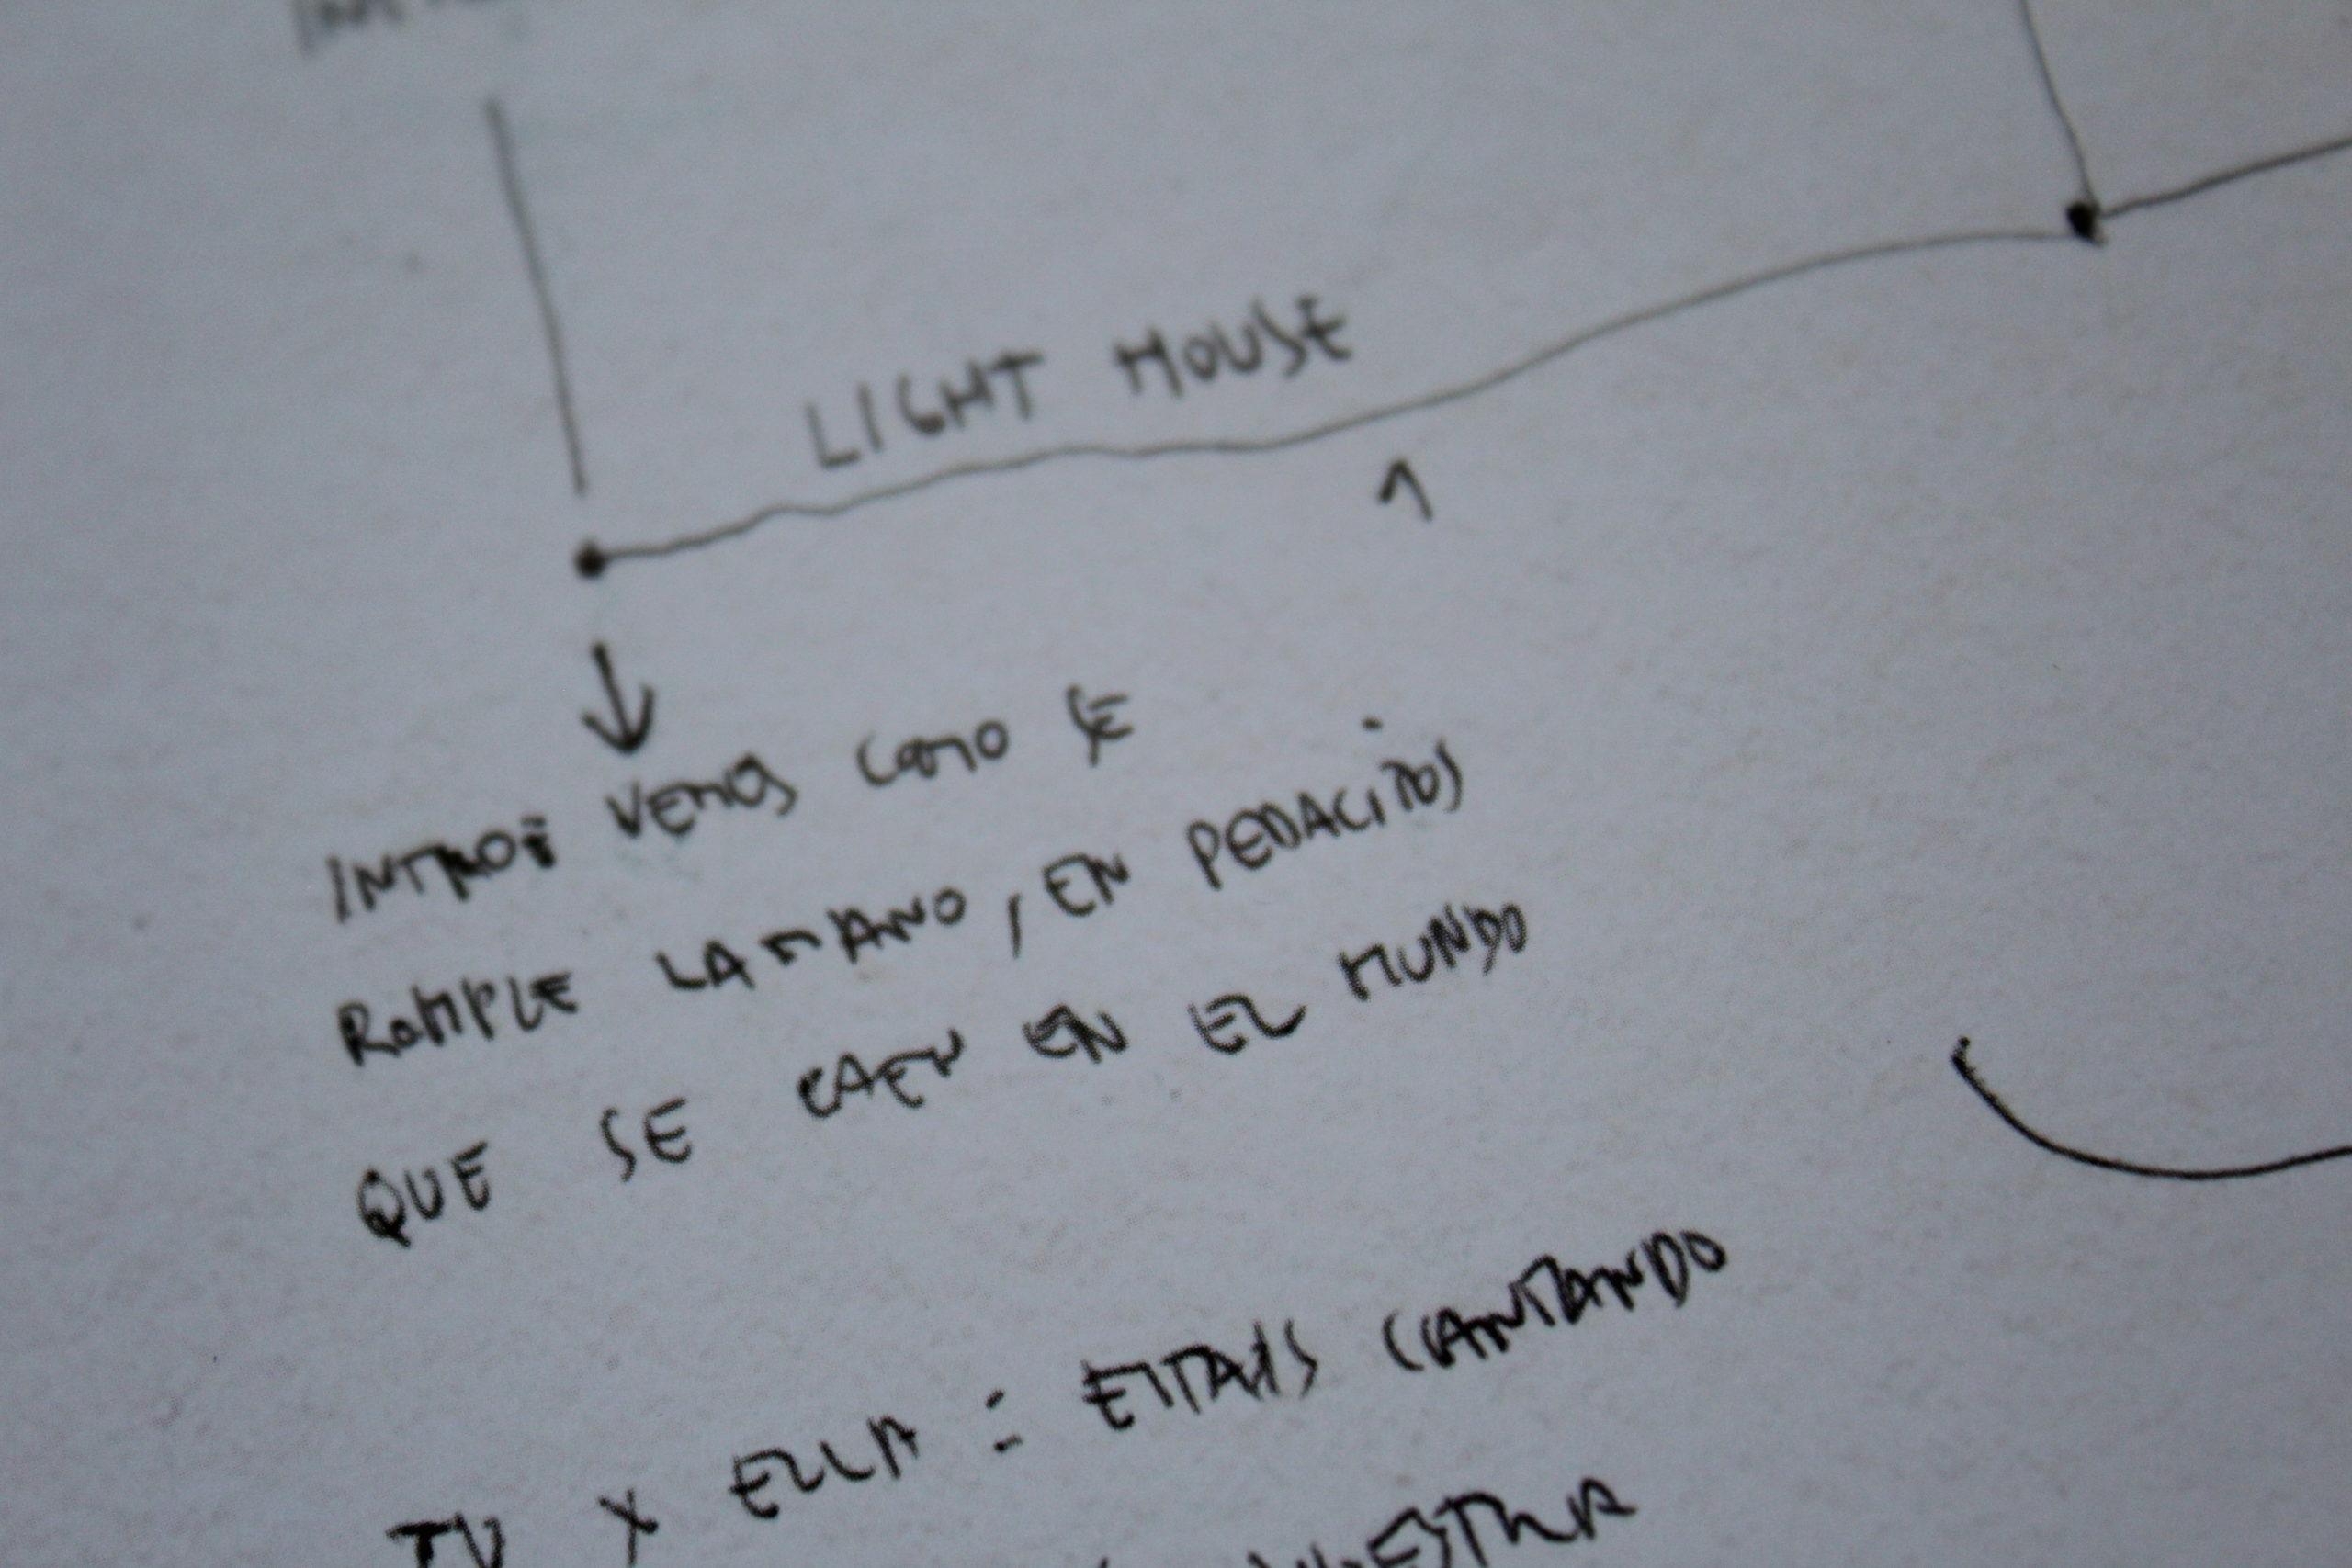 LIGHT HOUSE
INTRO: VEMOS COMO SE
ROMPE LA MANO, EN PEDACITOS
QUE SE CAEN EN EL MUNDO
TU Y ELLA = ESTAIS CANTANDO